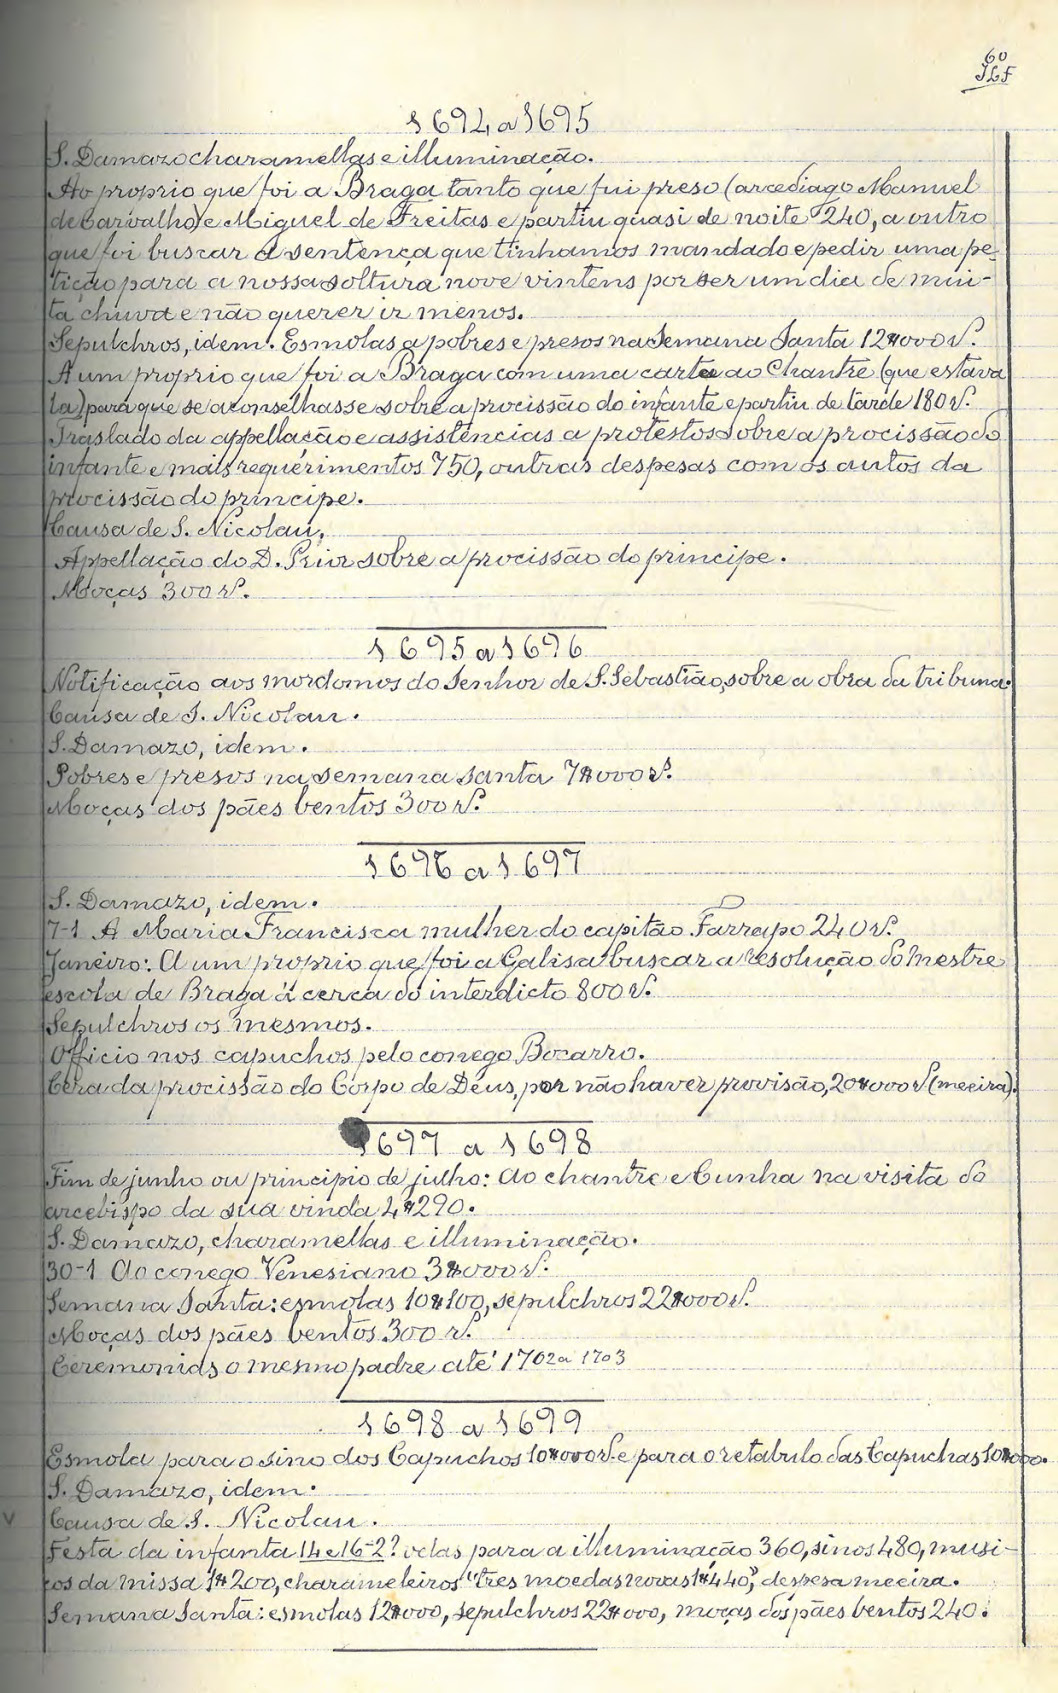 60
JLF
1694 a 1695
S. Damazo charamellas e illuminação.
Ao proprio que foi a Braga tanto que fui preso (arcediago Manuel
de Carvalho) e Miguel de Freitas e partiu quasi de noite 240, a outro
que foi buscar a sentença que tinhamos mandado e pedir uma pe-
tição para a nossa soltura nove vintens por ser um dia de mui-
ta chuva e não querer ir menos.
Sepulchros, idem. Esmolas a pobres e presos na Semana Santa 12$000 rs.
A um proprio que foi a Braga com uma carta ao Chantre (que estava
la) para que se aconselhasse sobre a procissão do infante e partiu de tarde 180 rs.
Traslado da appellação e assistências a protestos sobre a procissão do
infante e mais requerimentos 750, outras despesas com os autos da
procissão do principe.
Causa de S. Nicolau.
Appellação do D. Prior sobre a procissão do principe.
Moças 300 rs.
1695 a 1696
Notificação aos mordomos do Senhor de S. Sebastião, sobre a obra da tribuna.
Causa de S. Nicolau.
S. Damazo, idem.
Pobres e presos na semana santa 7$000 rs.
Moças dos pães bentos 300 rs.
1696 a 1697
S. Damazo, idem.
7-1 A Maria Francisca mulher do capitão Farrapo 240 rs.
Janeiro: A um proprio que foi a Galisa buscar a resolução do Mestre
escola de Braga á cerca do interdicto 800 rs.
Sepulchros os mesmos.
Officio nos capuchos pelo conego Bocarro.
Cera da procissão do Corpo de Deus, por não haver provisão, 20$000 rs (meeira).
1697 a 1698
Fim de junho ou principio de julho: Ao chantre e Cunha na visita do
arcebispo da sua vinda 4$290.
S. Damazo, charamellas e illuminação.
30-1 Ao conego Venesiano 3$000 rs.
Semana Santa: esmolas 10$100, sepulchros 22$000 rs.
Moças dos pães bentos 300 rs.
Ceremonias o mesmo padre até 1702 a 1703
1698 a 1699
Esmola para o sino dos Capuchos 10$000 rs. e para o retabulo das Capuchas 10$000.
S. Damazo, idem.
v Causa de S. Nicolau.
Festa da infanta 14 e 16-2? velas para a illuminação 360, sinos 480, musi-
cos da missa 1$200, charameleiros "tres moedas novas 1$440", despesa meeira.
Semana Santa: esmolas 12$000, sepulchros 22$000, moças dos pães bentos 240.